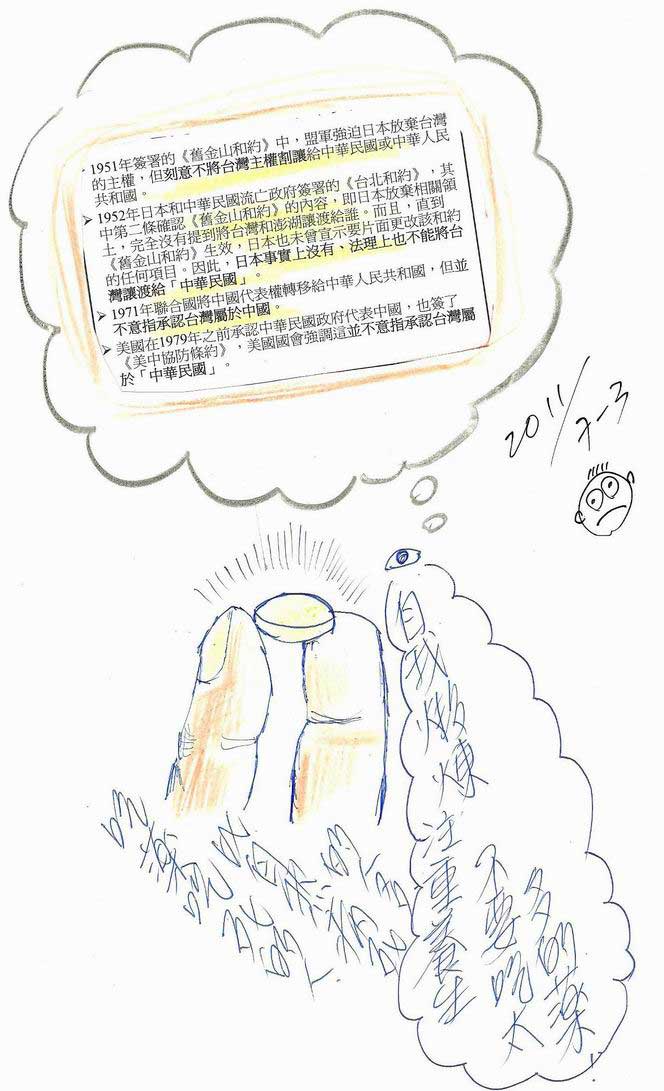 1951年簽署的《舊金山和約》中，盟軍強迫日本放棄台灣
的主權，但刻意不將台灣主權割讓給中華民國或中華人民
共和國。
➢ 1952年日本和中華民國流亡政府簽署的《台北和約》，其
中第二條確認《舊金山和約》的內容，即日本放棄相關領
土，完全沒有提到將台灣和澎湖讓渡給誰。而且，直到
《舊金山和約》生效，日本也未曾宣示要片面更改該和約
的任何項目。因此，日本事實上沒有、法理上也不能將台
灣讓渡給「中華民國」。
➢ 1971年聯合國將中國代表權轉移給中華人民共和國，但並
不意指承認台灣屬於中國。
➢ 美國在1979年之前承認中華民國政府代表中國，也簽了
《美中協防條約》，美國國會強調這並不意指承認台灣屬
於「中華民國」。
2011/7-3
自我鍛煉
注重養生
不要吃太
多的藥